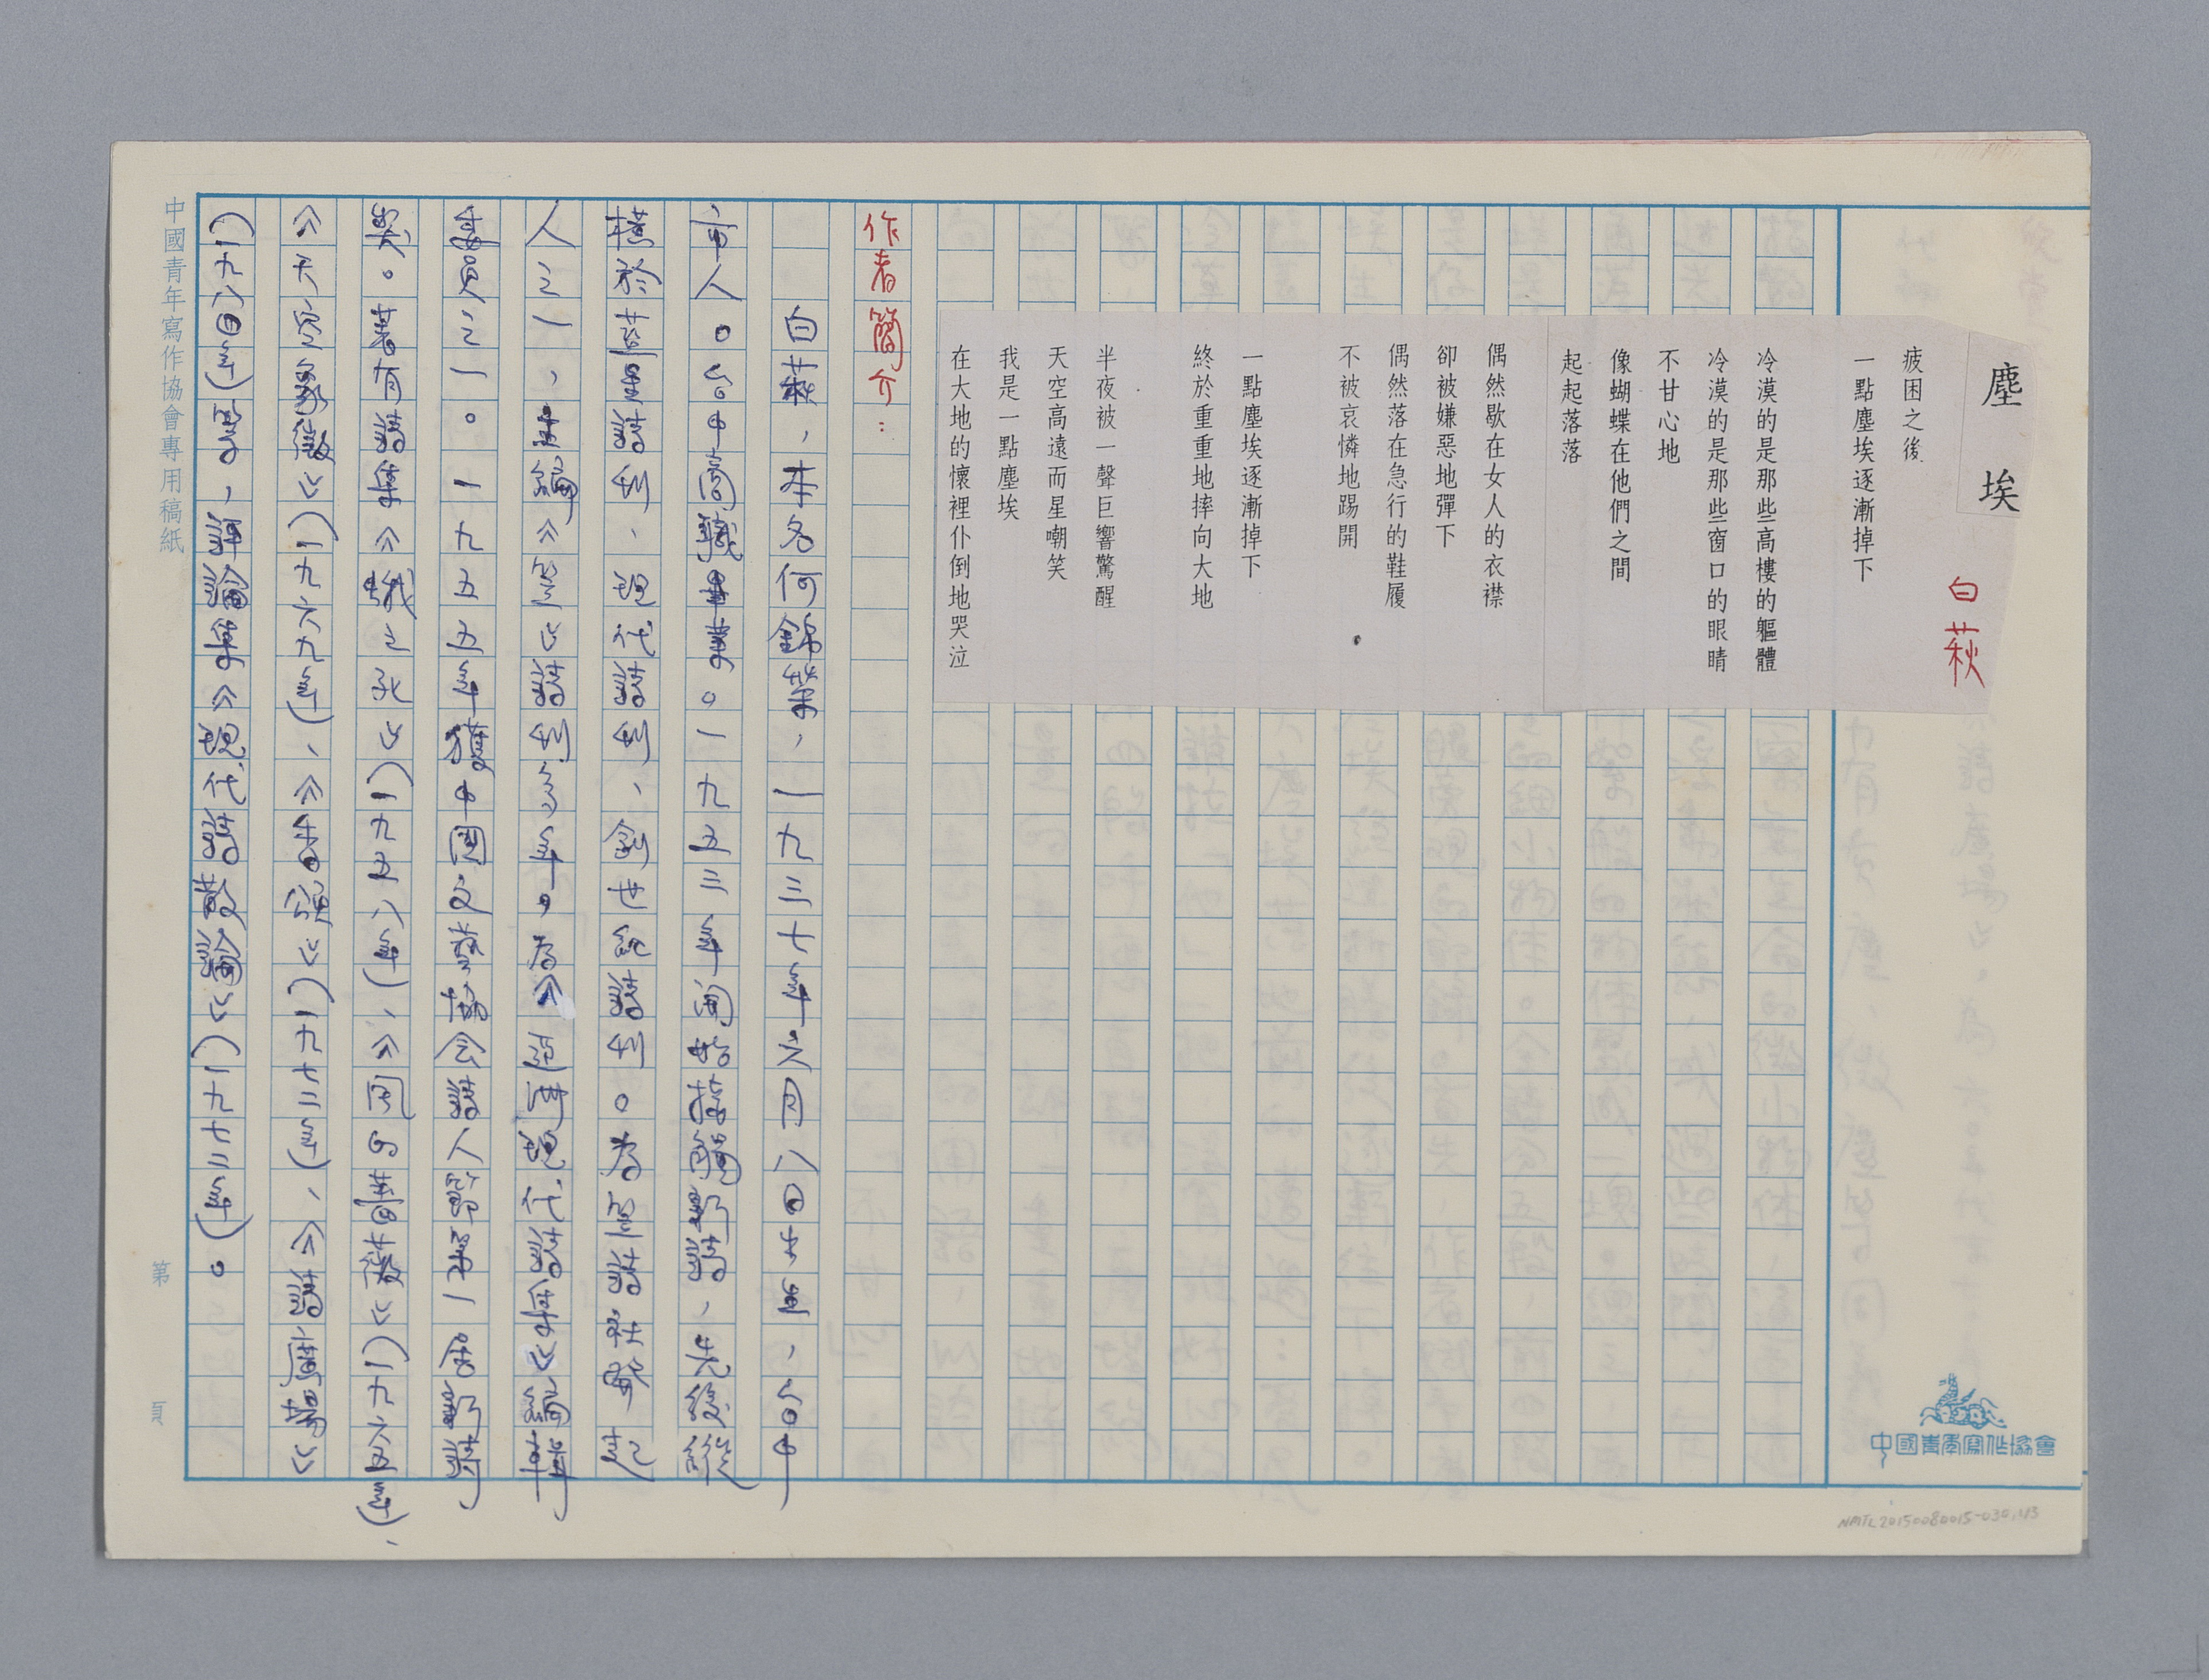 塵埃
白萩
疲困之後
一點塵埃逐漸掉下
冷漠的是那些高樓的軀體
冷漠的是那些窗口的眼睛
不甘心地
像蝴蝶在他們之間
起起落落
偶然歇在女人的衣襟
卻被嫌惡地彈下
偶然落在急行的鞋履
不被哀憐地踢開
一點塵埃逐漸掉下
終於重重地摔向大地
半夜被一聲巨響驚醒
天空高遠而星嘲笑
我是一點塵埃
在大地的懷裡仆倒地哭泣
作者簡介：
白萩，本名何錦榮，一九三七年六月八日生，台中
市人。台中高職畢業。一九五三年開始接觸新詩，先後縱
橫於藍星詩刊、現代詩刊、創世紀詩刊。為笠詩社發起
人之一，主編《笠》詩刊多年，為《亞洲現代詩集》編輯
委員之一。一九五五年獲中國文藝協会詩人節第一屆新詩
獎。著有詩集《蛾之死》（一九五八年）、《風的薔薇》（一九六五年）、
《天空象徵》（一九六九年）、《香頌》（一九七二年）、《詩廣場》
（一九八四年）等，評論集《現代詩散論》（一九七二年）。
中國青年寫作協會專用稿紙
第 頁
中國青年寫作協會
NMTL20150080015-030,113